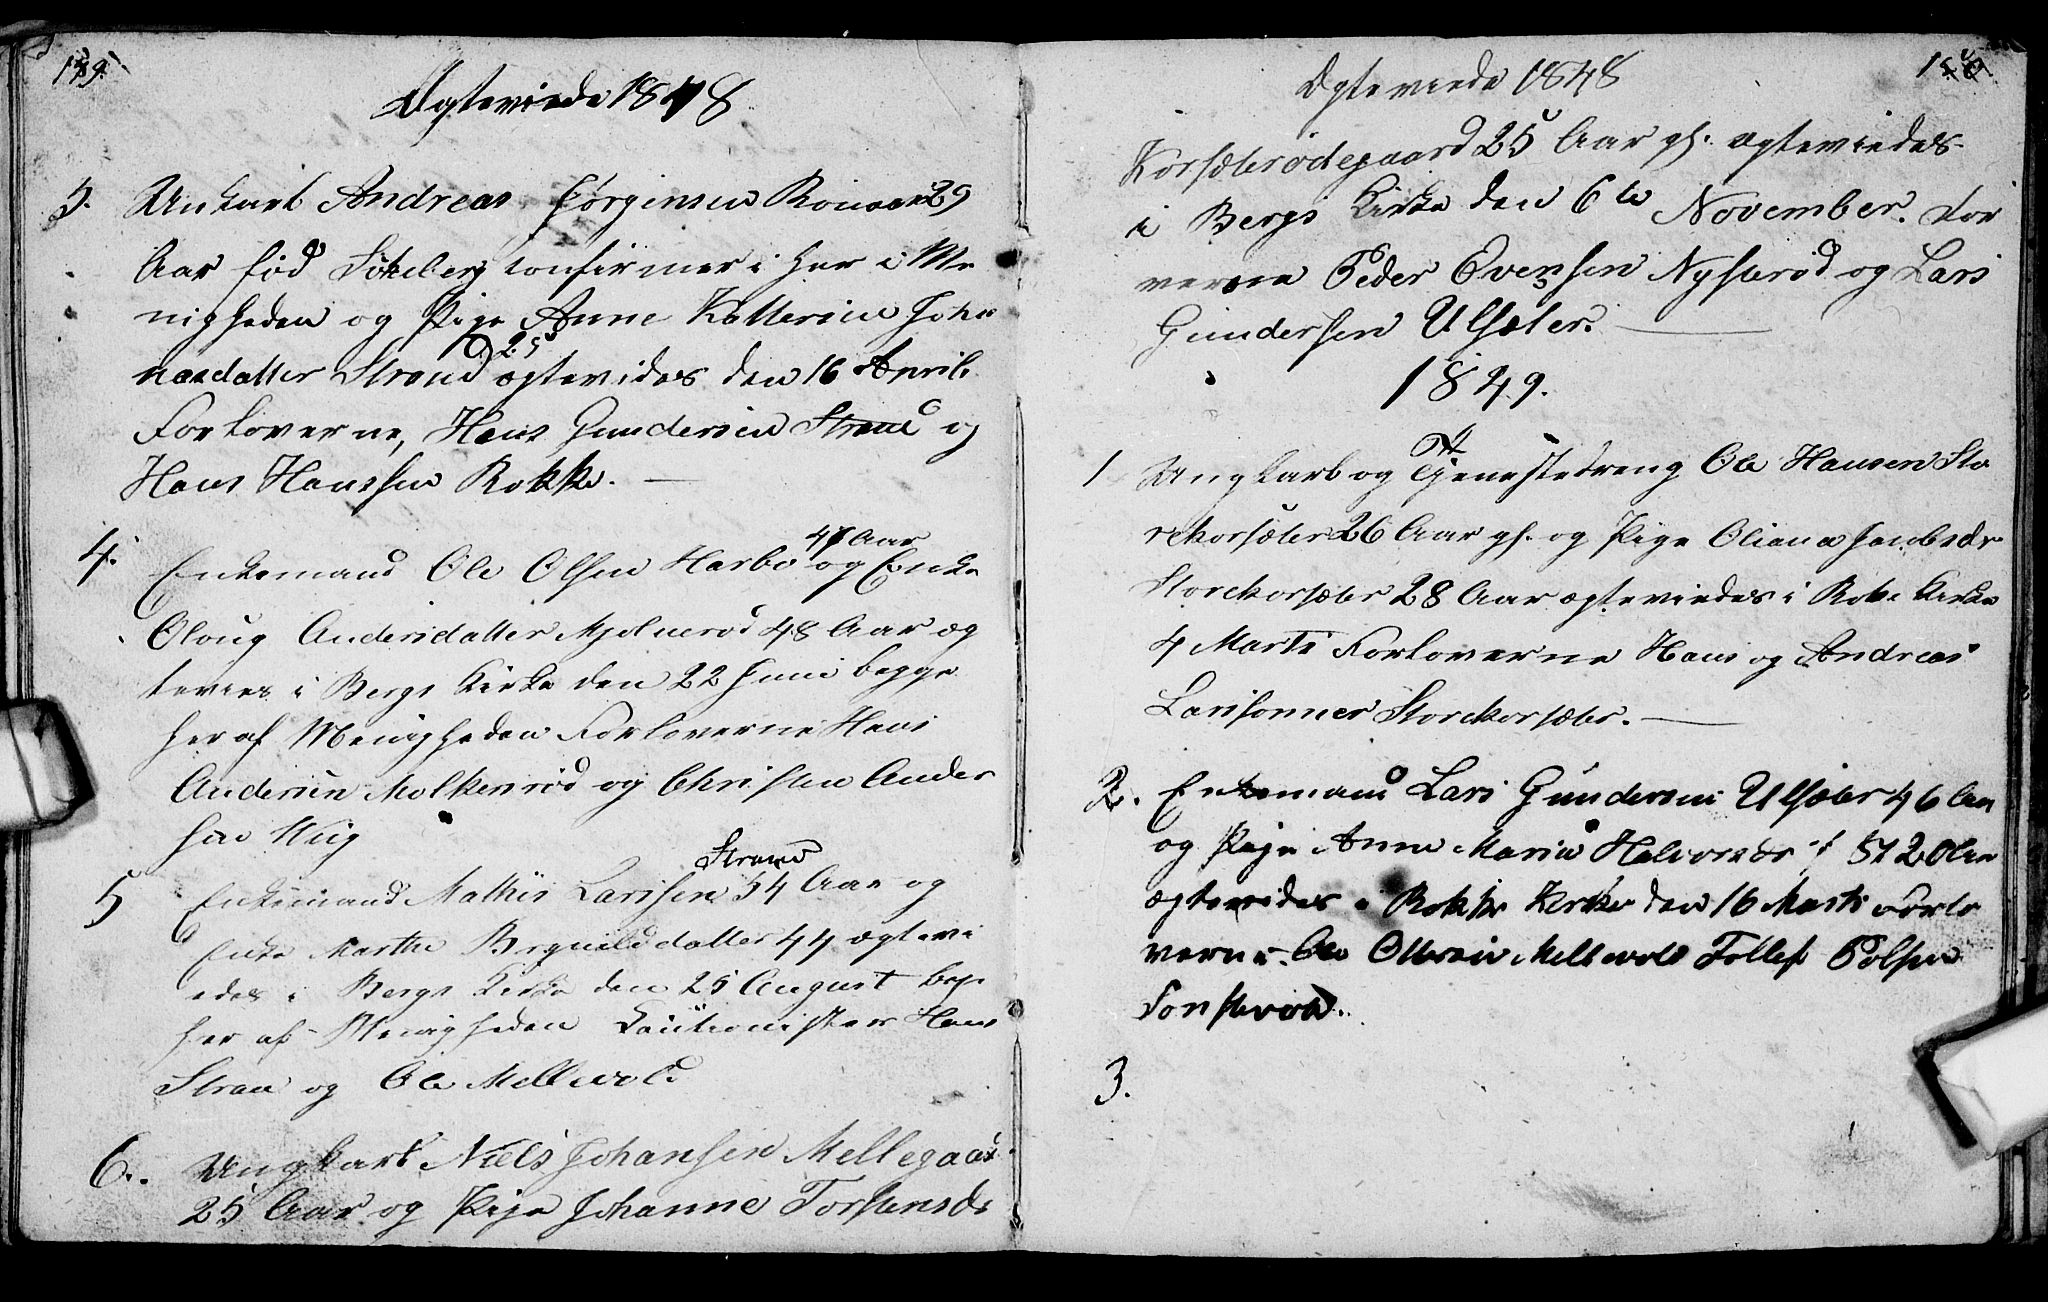 179.
Ægteviede 1848
3. Unkarl Andreas Jørgensen 29
Aar fød Sikeberg Confirmer i her i Me
nigheden og Pige Anne Katterine Joha
25
nasdatter Strand ægtevides den 16 April
Forloverne, Hans Gundersen Strand og
Hans Hanssen Rokke.
47 Aar
4. Enkemand Ole Olsen Harbo og Enke
Oloug Andersdatter Mjølnerød 48 Aar æg
tevies i Bergs Kirke den 22 Juni begge
her af Menigheden Forloverne Hans
Andersen Molkerød og Christen Ander
sen Wiig
Strand
5 Enkemand Mathis Larssen 54 Aar og
Enke Marthe datter 44 ægtevi
edes i Bergs Kirke den 25 August beg.
her af Menigheden Cautionister Hans
Stran og Ole Mellevold
6. Ungkarl Niels Johansen Mellegaar
25 Aar og Pige Johanne Torstensdr
Ægteviede 1848
Korsæterødegaard 25 Aar gl. ægteviedes
i Bergs Kirke den 6te November. For
verne Peder Evensen Nysterød og Lars
Gundersen Ulsæter.
1849.
1 Ungkarl og Tjenestedreng Ole Hansen Sto
rekorsæter 26 Aar gl. og Pige Oliana Jacobsdr
Storekorsæter 28 Aar ægteviedes i Roke Kirke
4 Marts Forloverne Hans og Andreas
Larssønner Storekorsæter.
2. Enkemand Lars Gundersen Ulsæter 46 Aar
og Pige Anne Maria Halvorsdr
ægtevides i Rokke Kirke den 16 Marts Forlo
verne Ole Olleson Mellevold Tollef Polsen
Tonsterød.
3.